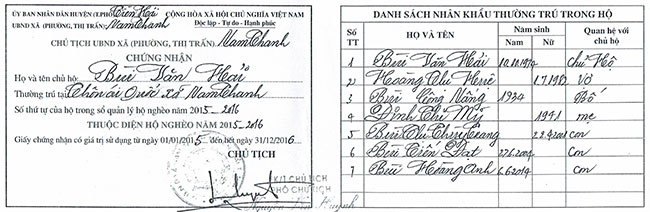 ỦY BAN NHÂN DÂN HUYỆN (T.PHỐ) Tiền Hải
UBND XÃ (PHƯỜNG, THỊ TRẤN) Nam Thanh
CỘNG HÒA XÃ HỘI CHỦ NGHĨA VIỆT NAM
Độc lập - Tự do - Hạnh phúc
CHỦ TỊCH UBND XÃ (PHƯỜNG, THỊ TRẤN) Nam Thanh
CHỨNG NHẬN
Họ và tên chủ hộ: Bùi Văn Hải
Thường trú tại: Thôn ái Quốc xã Nam Thanh
Số thứ tự của hộ trong sổ quản lý hộ nghèo 2015 - 2016
THUỘC DIỆN HỘ NGHÈO NĂM 2015 - 2016
Giấy chứng nhận có giá trị sử dụng từ ngày 01/01/2015 đến hết ngày 31/12/2016
CHỦ TỊCH
K/T CHỦ TỊCH
PHÓ CHỦ TỊCH
DANH SÁCH NHÂN KHẨU THƯỜNG TRÚ TRONG HỘ
Số TT HỌ VÀ TÊN Năm sinh Nam Nữ Quan hệ với chủ hộ
1 Bùi Văn Hải 10.10.1974 chủ Hộ
2 Hoàng Thị 1.7.198 Vợ
3 Bùi Công Năng 1934 Bố
4 Đinh Thị Mỹ 1941 mẹ
5 Bùi Thị Thu Trang con
6 Bùi Tiến Đạt 27.6.2014 con
7 Bùi Hoàng Anh 6.6.2014 con